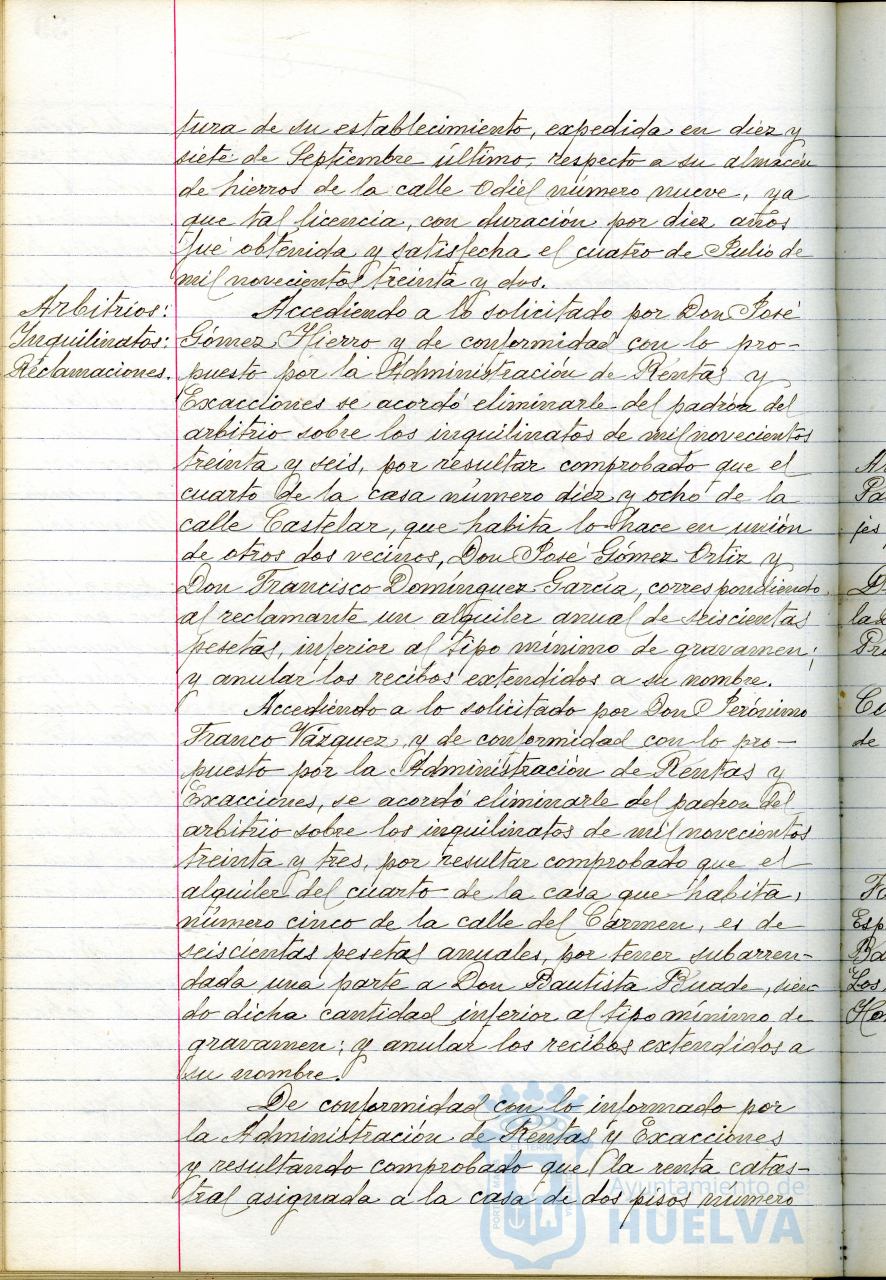 tura de su establecimiento, expedida en diez y
siete de Septiembre último, respecto a su almacén
de hierros de la calle Odiel número nueve, ya
que tal licencia, con duración por diez años
fué obtenida y satisfecha el cuatro de Julio de
mil novecientos treinta y dos.
Arbitrios:
Inquilinatos:
Reclamaciones.
Accediendo a lo solicitado por Don José
Gómez Hierro y de conformidad con lo pro-
puesto por la Administración de Rentas y
Exacciones se acordó eliminarle del padrón del
arbitrio sobre los inquilinatos de mil novecientos
treinta y seis, por resultar comprobado que el
cuarto de la casa número diez y ocho de la
calle Castelar, que habita lo hace en unión
de otros dos vecinos, Don José Gómez Ortiz y
Don Francisco Domínguez García, correspondiendo
al reclamante un alquiler anual de seiscientas
pesetas, inferior al tipo mínimo de gravamen;
y anular los recibos extendidos a su nombre.
Accediendo a lo solicitado por Don Jerónimo
Franco Vázquez y de conformidad con lo pro-
puesto por la Administración de Rentas y
Exacciones, se acordó eliminarle del padron del
arbitrio sobre los inquilinatos de mil novecientos
treinta y tres, por resultar comprobado que el
alquiler del cuarto de la casa que habita,
número cinco de la calle del Carmen, es de
seiscientas pesetas anuales, por tener subarren-
dada una parte a Don Bautista Buade, sien-
do dicha cantidad inferior al tipo mínimo de
gravamen; y anular los recibos extendidos a
su nombre.
De conformidad con lo informado por
la Administración de Rentas y Exacciones
y resultando comprobado que la renta catas-
tral asignada a la casa de dos pisos número
Ayuntamiento de
HUELVA